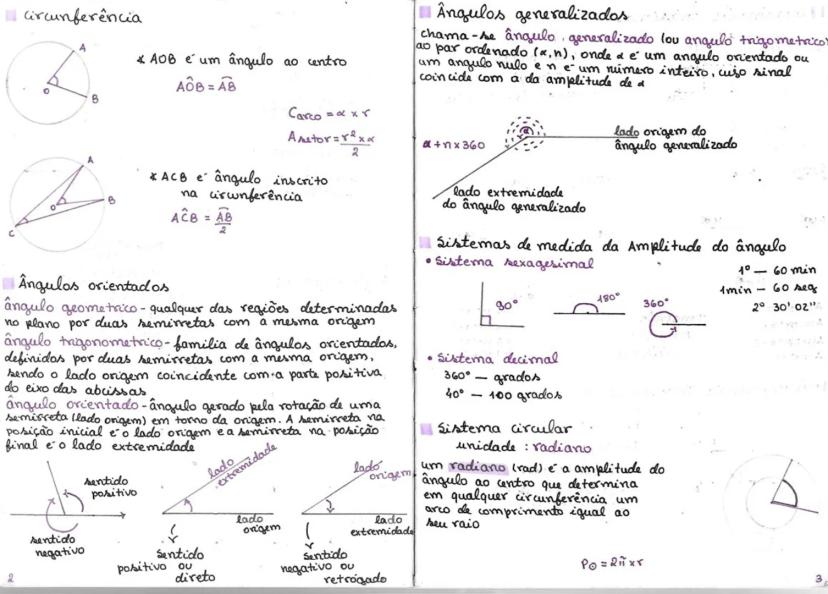 circunferência
A
O
B
∡ AOB é um ângulo ao centro
AÔB = AB
Carco = α × r
Asetor = r² × α
2
A
O
B
C
∡ ACB é ângulo inscrito
na circunferência
AĈB = AB
2
Ângulos orientados
ângulo geometrico - qualquer das regiões determinadas
no plano por duas semirretas com a mesma origem
ângulo trigonometrico - familia de ângulos orientados,
definidos por duas semirretas com a mesma origem,
sendo o lado origem coincidente com a parte positiva
do eixo das abcissas
ângulo orientado - ângulo gerado pela rotação de uma
semirreta (lado origem) em torno da origem. A semirreta na
posição inicial é o lado origem e a semirreta na posição
final é o lado extremidade
sentido
positivo
sentido
negativo
lado
extremidade
lado
origem
Sentido
positivo ou
direto
lado
origem
lado
extremidade
Sentido
negativo ou
retrógado
2
Ângulos generalizados
chama-se ângulo generalizado (ou angulo trigometrico)
ao par ordenado (α, n), onde α é um angulo orientado ou
um angulo nulo e n é um número inteiro, cujo sinal
coincide com a da amplitude de α
α + n × 360
α
lado origem do
ângulo generalizado
lado extremidade
do ângulo generalizado
Sistemas de medida da Amplitude do ângulo
• Sistema sexagesimal
1º — 60 min
1min — 60 seg
2º 30' 02''
90º
180º
360º
• Sistema decimal
360º — grados
40º — 100 grados
Sistema circular
unidade : radiano
um radiano (rad) é a amplitude do
ângulo ao centro que determina
em qualquer circunferência um
arco de comprimento igual ao
seu raio
P⊙ = 2π × r
3